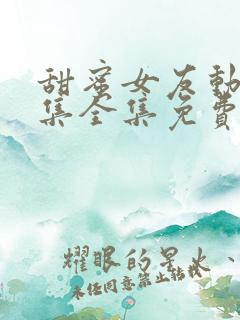 甜蜜女友動
集全集免費
耀眼的星火、
未经同意禁止转载